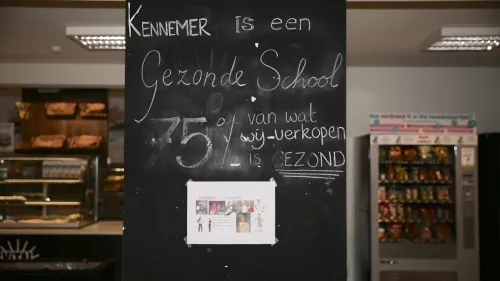 KENNEMER IS een
Gezonde School
75% van wat
wij verkopen
IS GEZOND